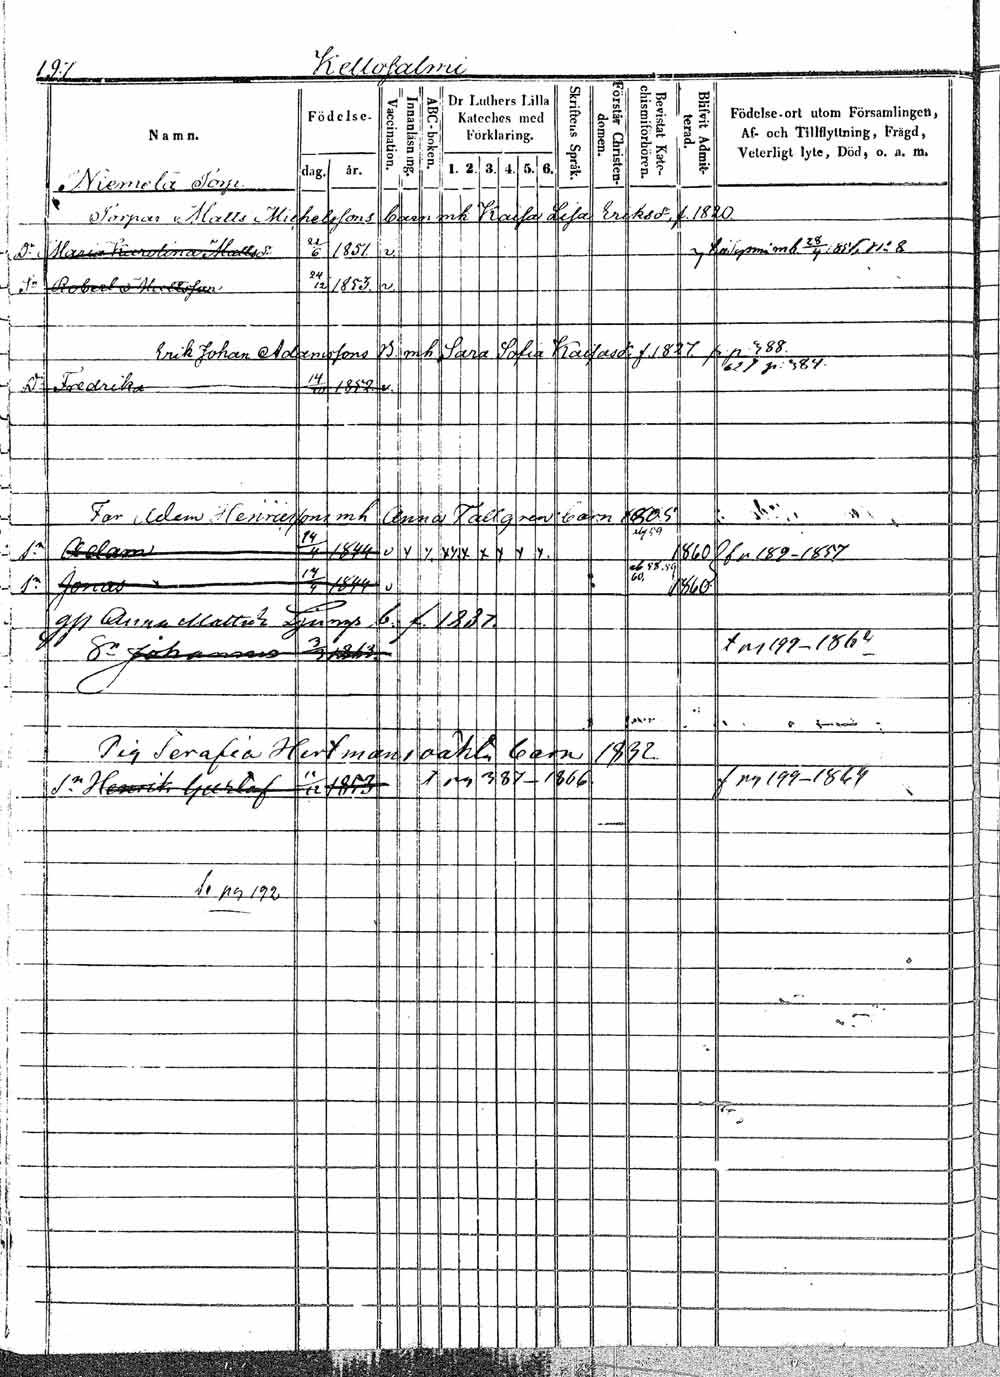 197 Kellosalmi
Namn.
Födelse-
dag. år.
Vaccination.
Innanläsning.
ABC-boken.
Dr Luthers Lilla Kateches med Förklaring.
1. 2. 3. 4. 5. 6.
Skriftens Språk.
Förstår Christendomen.
Bevistat Katechismiförhören.
Blifvit Admitterad.
Födelse-ort utom Församlingen, Af- och Tillflyttning, Frägd, Veterligt lyte, Död, o. a. m.
Niemelä Torp.
Torpar Matts Michelssons barn mh Kaisa Lisa Eriksd. f. 1820
Dr Maria Karolina Mattsd. 1851. v
Sn Robert Mattsson 24/12 1853. v
Erik Johan Adamssons B. mh Sara Sofia f. 1827 p. 388.
p. 384.
Dr Fredrika 1852. v.
Far Adam Henricssons mh Anna Tallgren barn 1805
Sn Adam 1844 v x x x x x x x x 1860 f n 189-1857
Sn Jonas 1844 v 60. 1860
gft Anna Mattsd. Ljungs b. f. 1837.
Sn Johannes 1863. t ng 199-1862
Pig Serafia Hertmans oäkta barn 1832.
Sn Henrik Gustaf 11/12 1853 t pg 387-1866 f ng 199-1864
Se pg 192